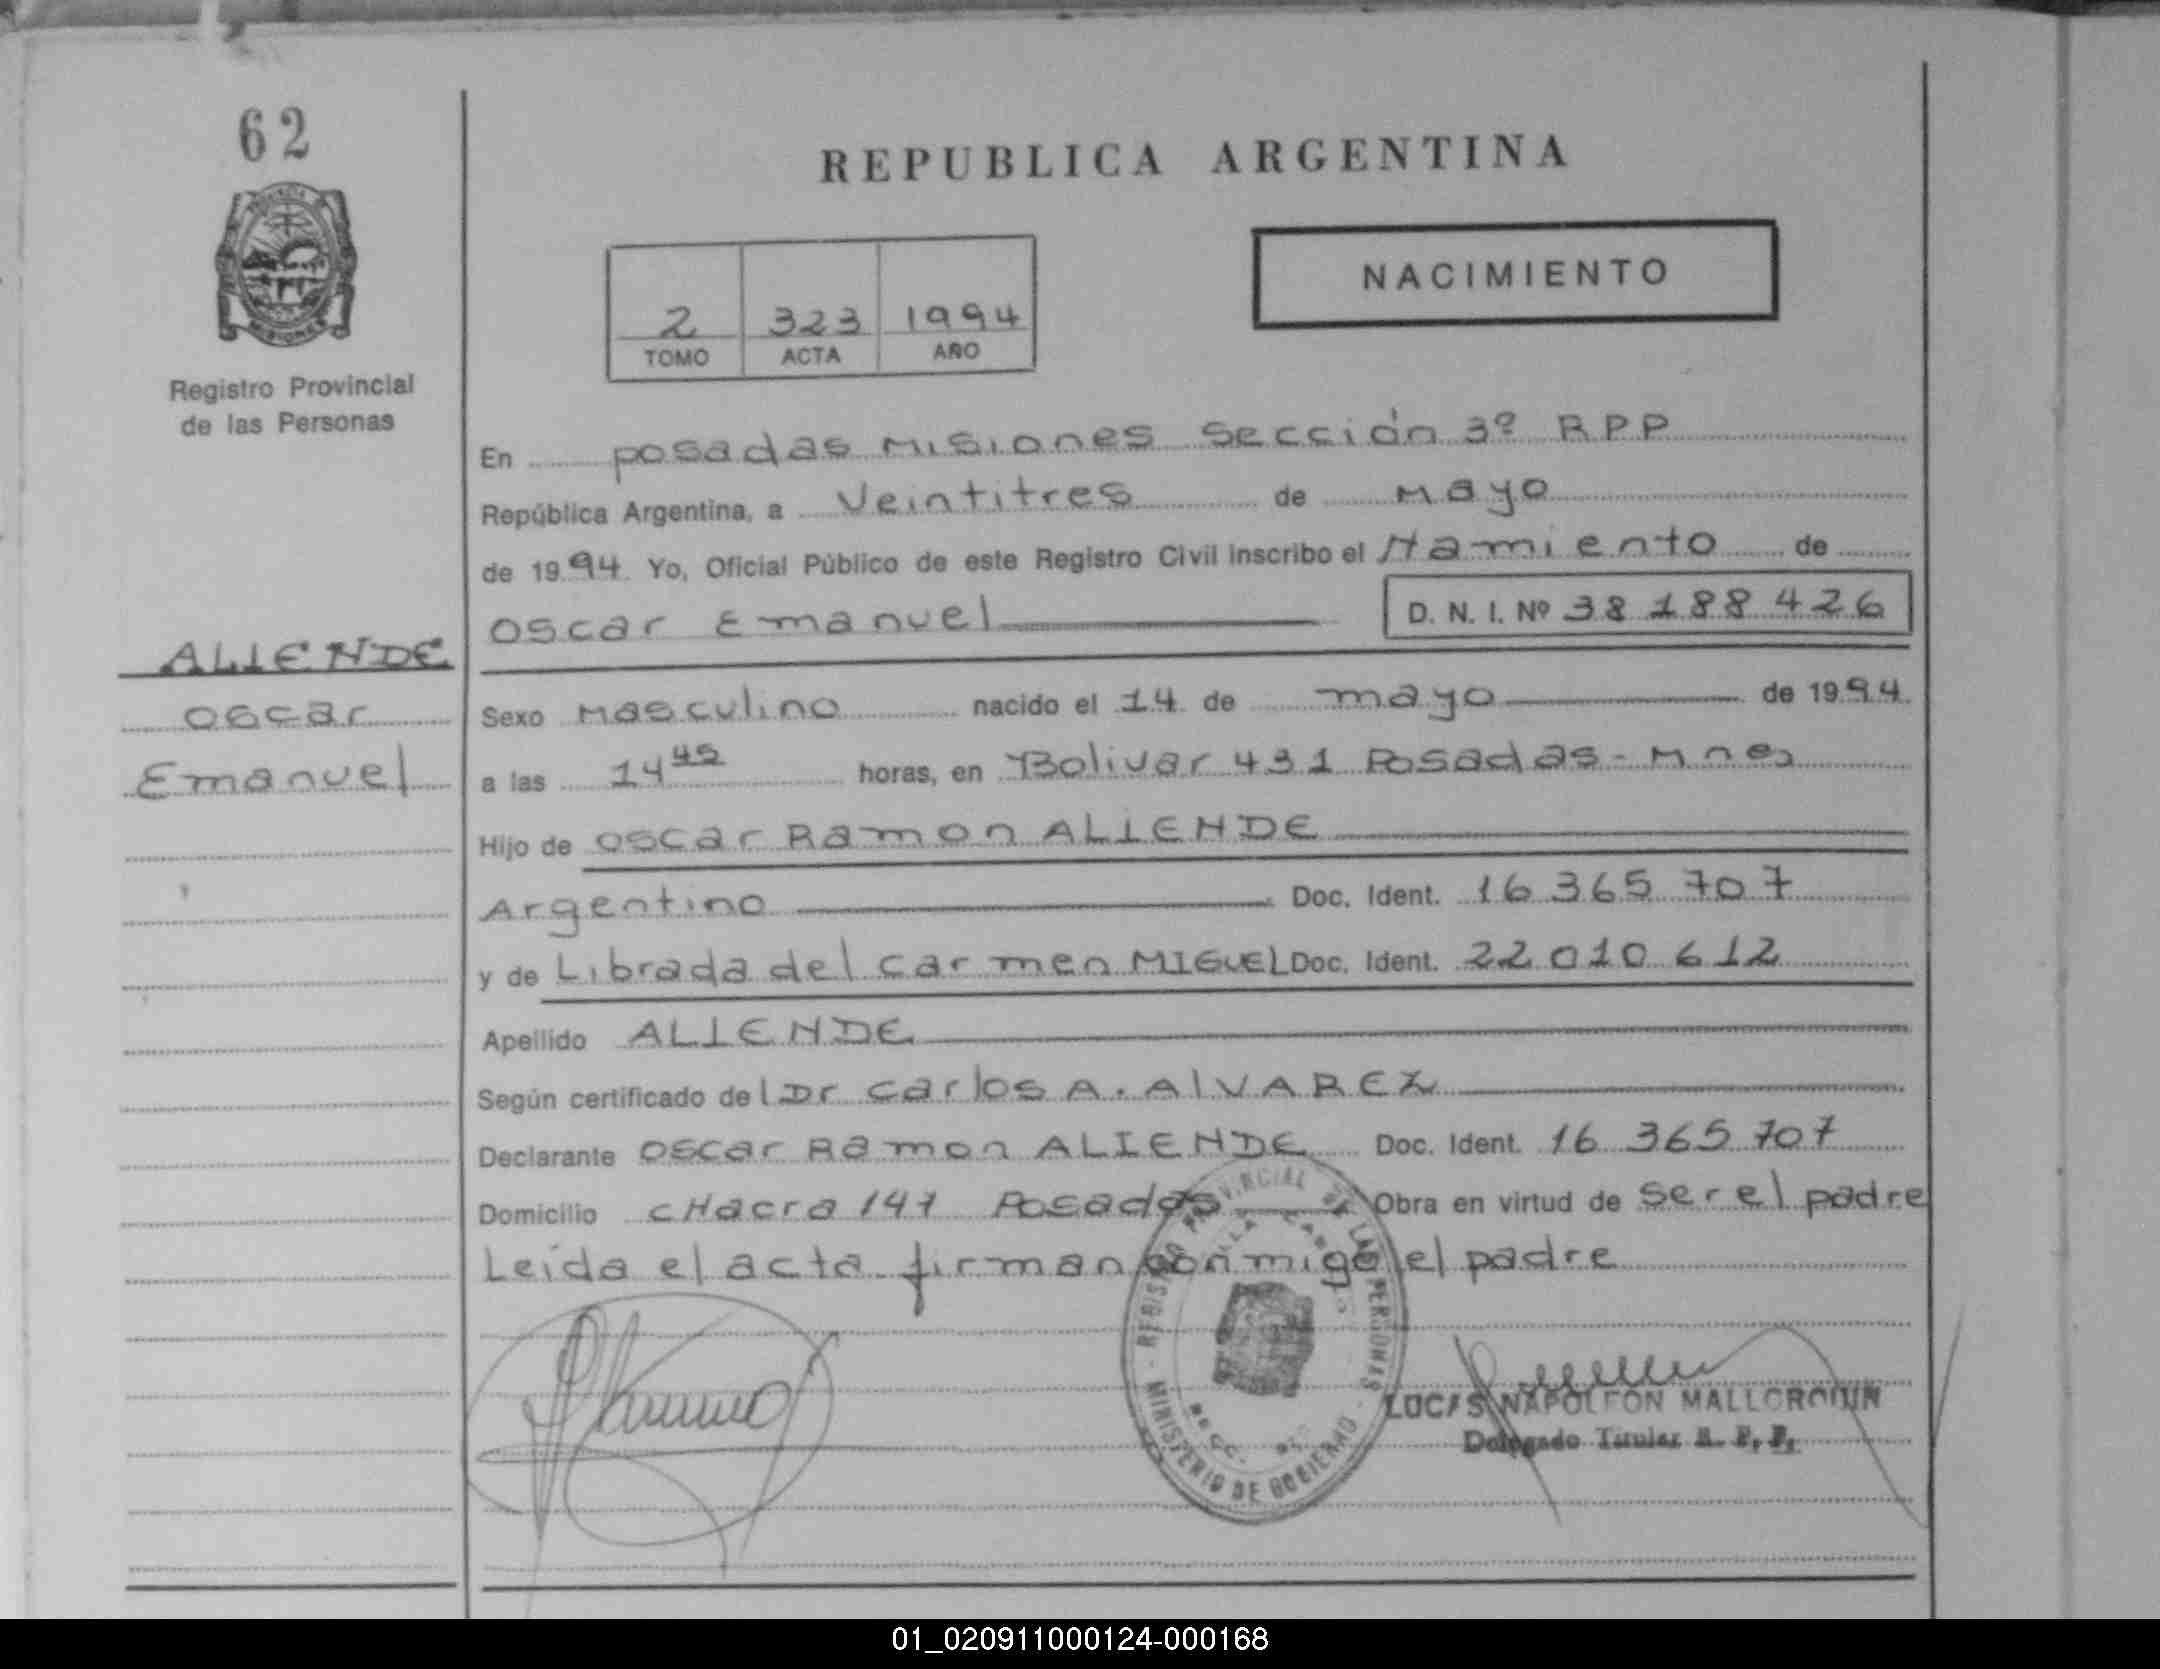 62
REPUBLICA ARGENTINA
NACIMIENTO
2 323 1994
TOMO ACTA AÑO
Registro Provincial
de las Personas
En posadas Misiones Sección 3º RPP
República Argentina, a Veintitres de Mayo
de 1994 Yo, Oficial Público de este Registro Civil inscribo el Namiento de
Oscar Emanuel D. N. I. Nº 38 188 426
ALIENDE
Oscar
Emanuel
Sexo Masculino nacido el 14 de mayo de 1994.
a las 14 45 horas, en Bolivar 431 Posadas - Mnes
Hijo de Oscar Ramon ALIENDE
Argentino Doc. Ident. 16 365 707
y de Librada del carmen MIGUEL Doc. Ident. 22 010 612
Apellido ALIENDE
Según certificado del Dr Carlos A. AlVAREZ
Declarante Oscar Ramon ALIENDE Doc. Ident. 16 365 707
Domicilio cHacra 147 Posadas Obra en virtud de ser el padre
Leida el acta firman conmigo el padre
REGISTRO PROVINCIAL DE LAS PERSONAS
MINISTERIO DE GOBIERNO
LUCAS NAPOLEON MALLORQUIN
Delegado Titular R. P. P.
01_020911000124-000168